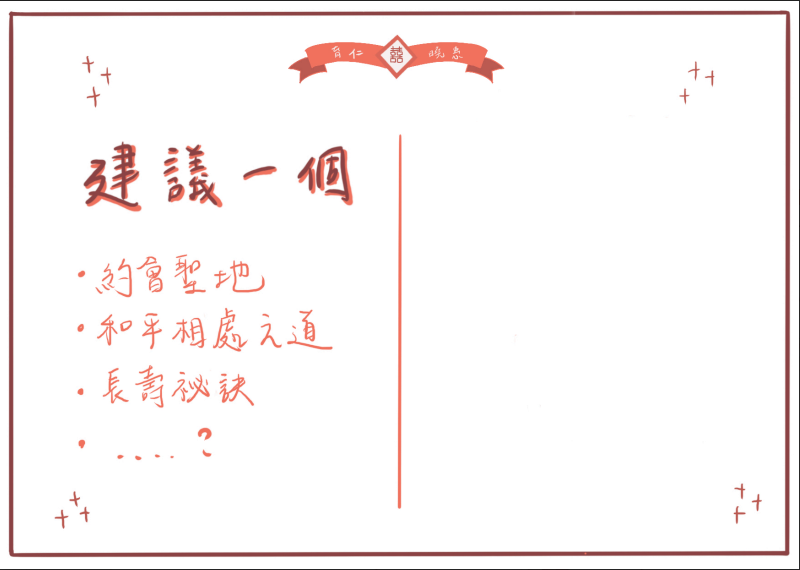 育仁 囍 曉惠
建議一個
• 約會聖地
• 和平相處之道
• 長壽祕訣
• ....?